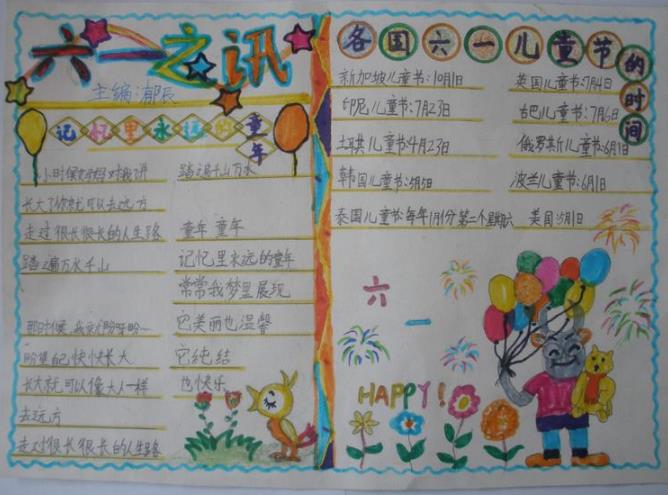 六一之讯
主编:郁辰
记忆里永远的童年
小时候妈妈对我讲
长大了你就可以去远方
走过很长很长的人生路
踏遍万水千山
那时候,我天天盼呀盼
盼望自己快快长大
长大就可以像大人一样
去远方
走过很长很长的人生路
踏遍千山万水
童年 童年
记忆里永远的童年
常常我梦里展现
它美丽也温馨
它纯结
也快乐
各国六一儿童节的时间
新加坡儿童节:10月1日
英国儿童节:7月4日
印尼儿童节:7月23日
古巴儿童节:7月6日
土耳其儿童节:4月23日
俄罗斯儿童节:6月1日
韩国儿童节:5月5日
波兰儿童节:6月1日
泰国儿童节:每年1月份第二个星期六
美国:5月1日
六一
HAPPY!